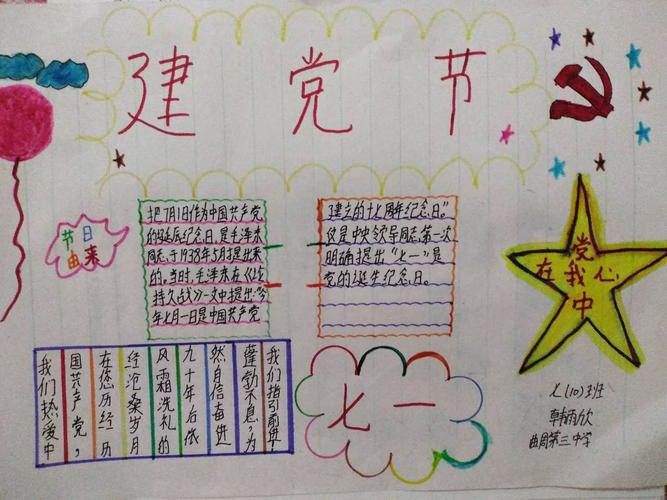 建党节
节日
由来
把7月1日作为中国共产党
的诞辰纪念日,是毛泽东
同志于1938年5月提出来
的。当时,毛泽东在《论
持久战》一文中提出:“今
年七月一日是中国共产党
建立的十七周年纪念日。”
这是中央领导同志第一次
明确提出“七一”是
党的诞生纪念日。
党
在我心
中
我们热爱中
国共产党,
在您历经历
经沧桑岁月
风霜洗礼的
九十年后依
然自信奋进
蓬勃不息,为
我们指引前进
七一
七(10)班
曲周第三中学